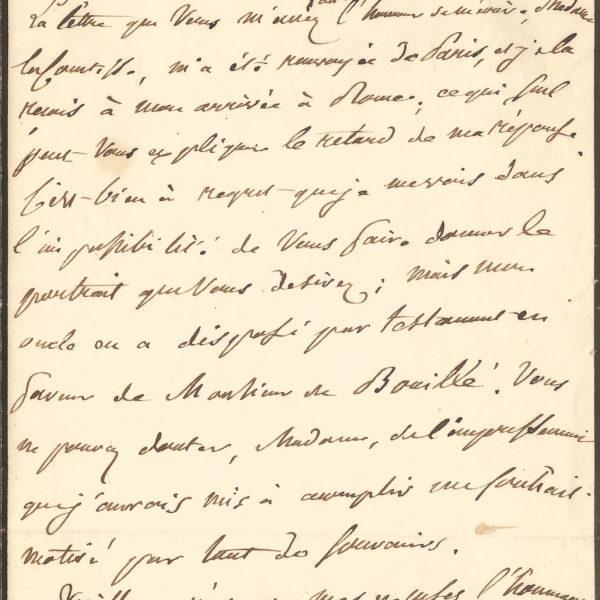 La lettre que Vous m'avez fait l'honneur de m'écrire, Madame
la Comtesse, m'a été renvoyée de Paris, et je la
reçois à mon arrivée à Rome, ce qui seul
peut Vous expliquer le retard de ma réponse.
C'est bien à regret que je me vois dans
l'impossibilité de Vous faire donner le
portrait que Vous desirez; mais mon
oncle en a disposé par testament en
faveur de Monsieur de Bouillé. Vous
ne pouvez douter, Madame, de l'empressement
que j'aurois mis à accomplir un souhait
motivé par tant de souvenirs.
l'hommage